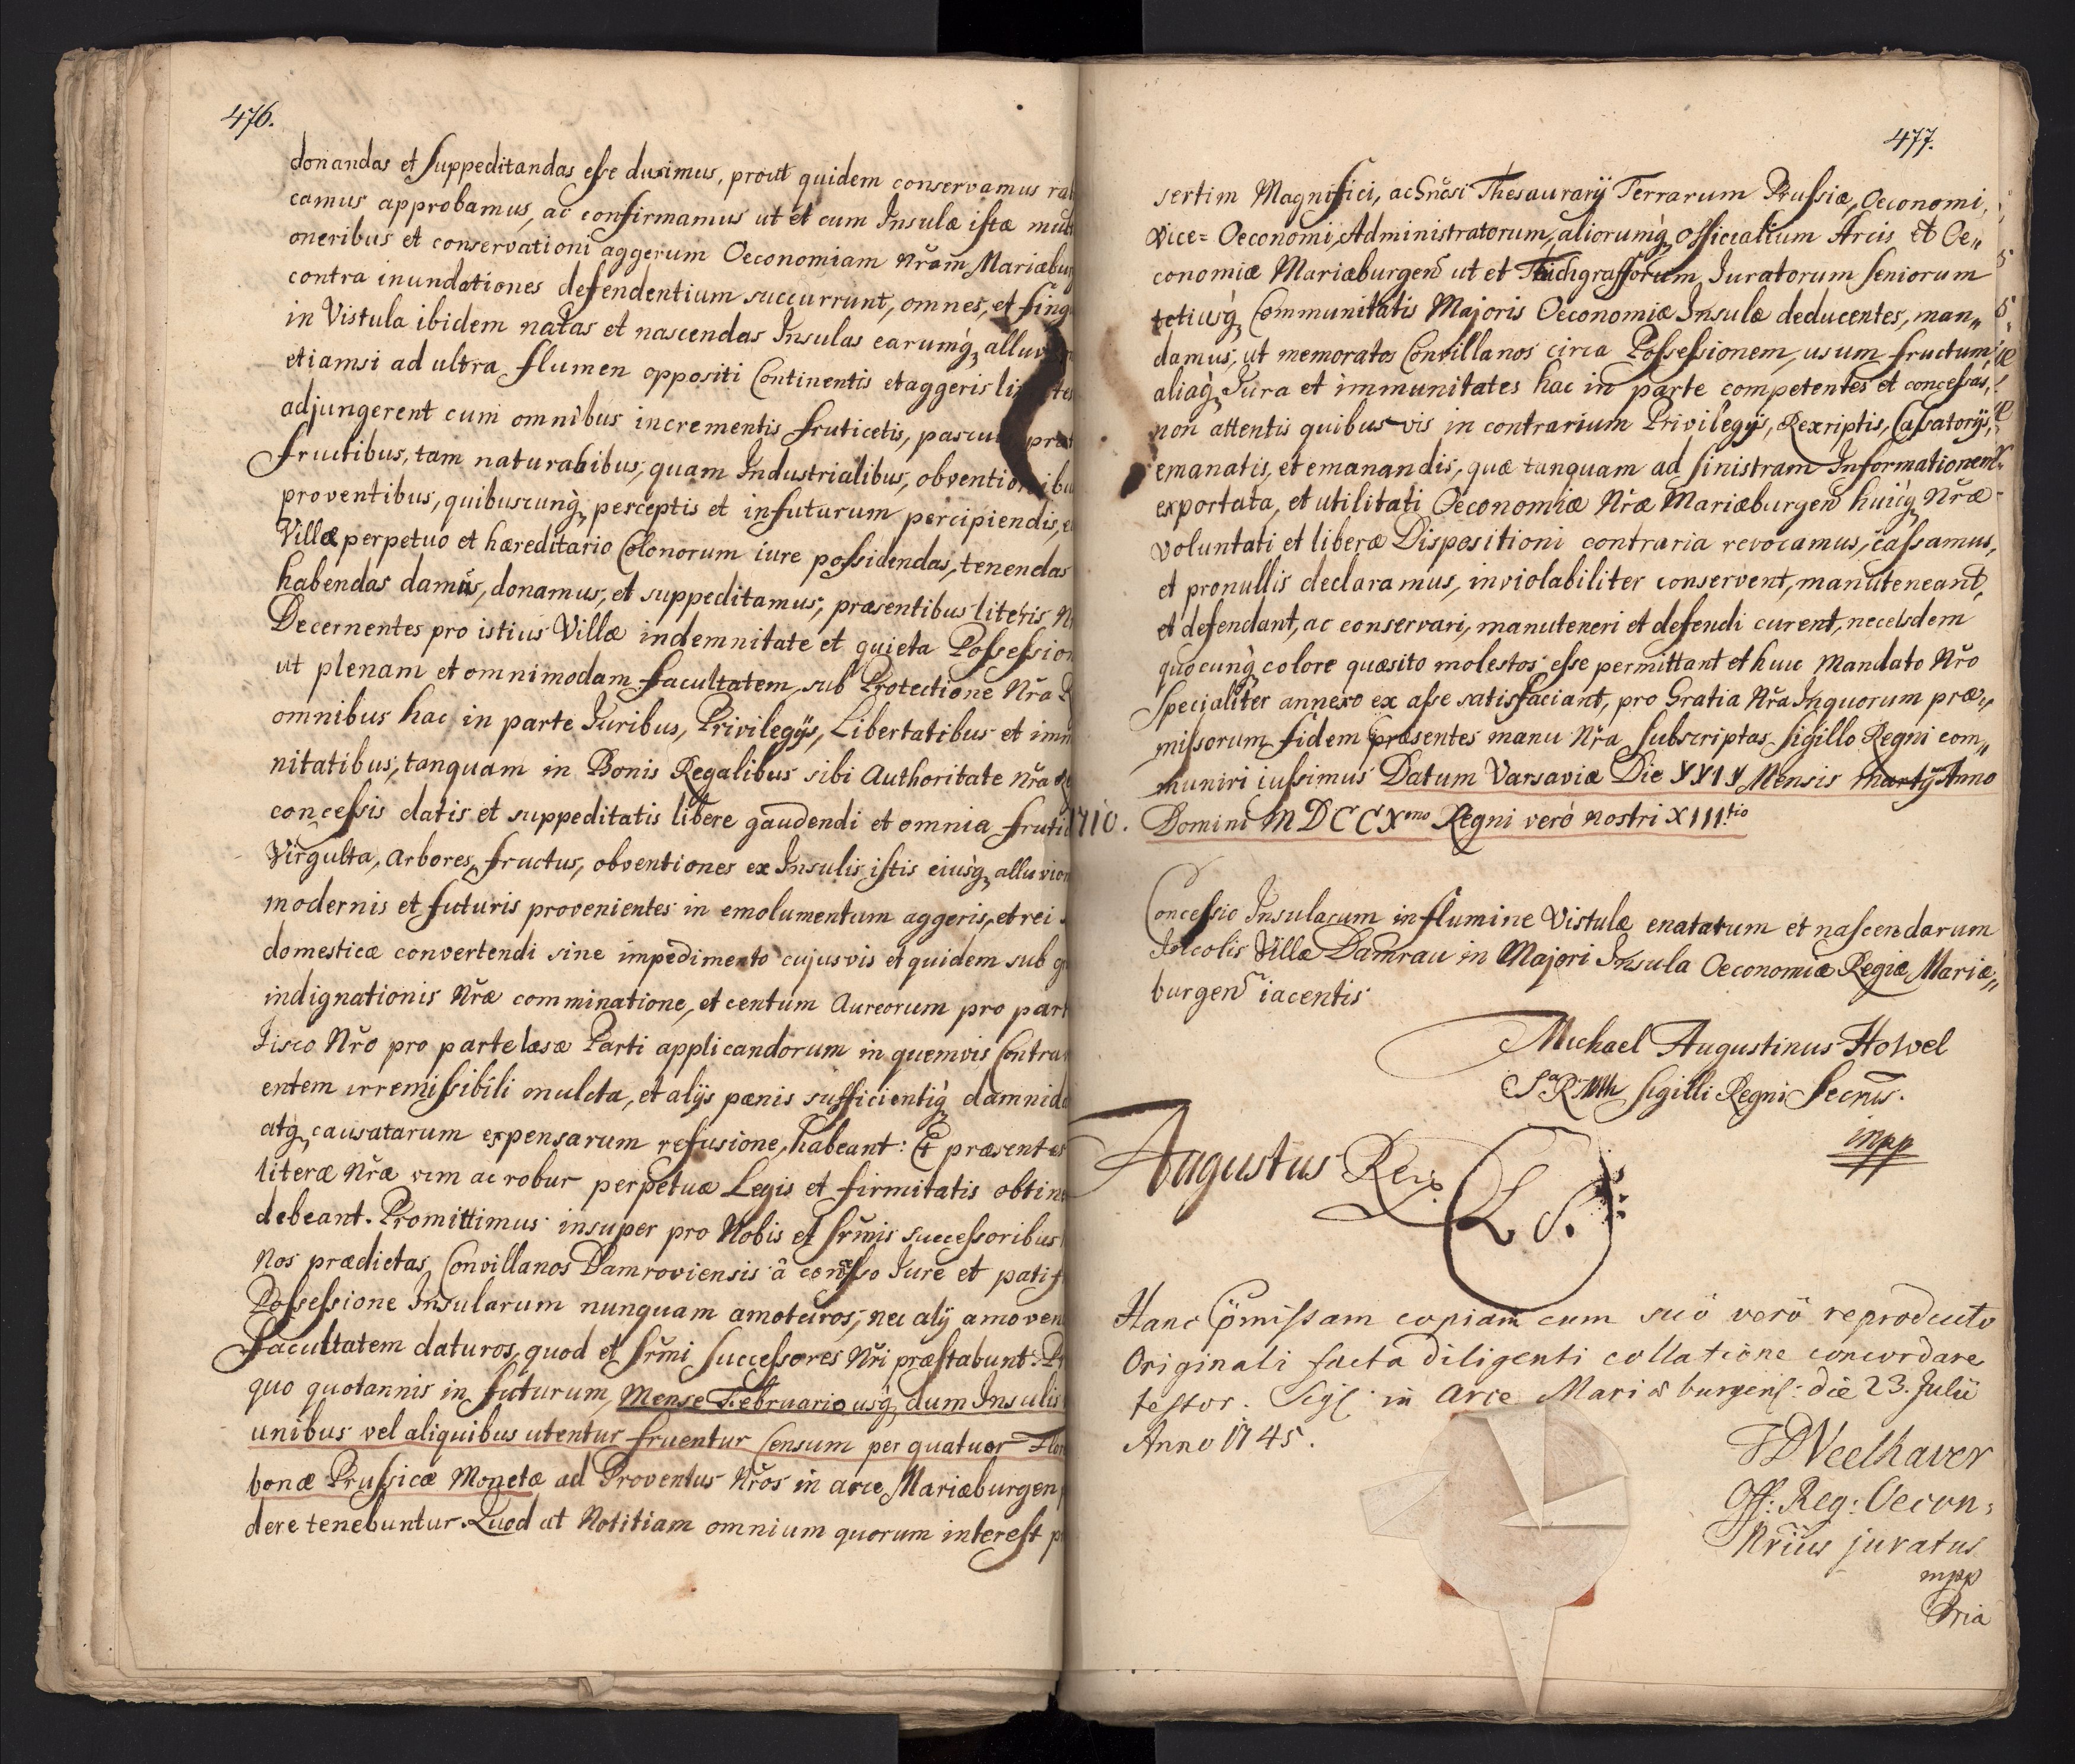 476.
donandas et suppeditandas esse duximus, prout quidem conservamus
camus approbamus, ac confirmamus ut et cum Insulæ istæ
oneribus et conservationi aggerum Oeconomiam Nr̃am
contra inundationes defendentium succurrunt, omnes, et
in Vistula ibidem natas et nascendas Insulas earumq̀,
etiamsi ad ultra flumen oppositi Continentis et aggeris
adjungerent cum omnibus incrementis fruticetis,
fructibus, tam naturalibus, quam Industrialibus,
proventibus, quibuscunq̀, perceptis et in futurum percipiendis,
Villæ perpetuo et hæreditario Colonorum iure possidendas, tenendas
habendas damus, donamus, et suppeditamus, præsentibus literis
Decernentes pro istius Villæ indemnitate et quieta
ut plenam et omnimodam facultatem, sub Protectione Nr̃a
omnibus hac in parte Juribus, Privilegijs, Libertatibus et
nitatibus, tanquam in Bonis Regalibus sibi Authoritate Nr̃a
concessis datis et suppeditatis libere gaudendi et omnia
Virgulta, Arbores, fructus, obventiones ex Insulis istis eiusq̀,
modernis et futuris provenientes in emolumentum aggeris, et rei
domesticæ convertendi sine impedimento cujusvis et quidem sub
indignationis Nr̃æ comminatione, et centum Aureorum pro
Fisco Nr̃o pro parte læsæ Parti applicandorum in quemvis
entem irremissibili mulcta, et alijs pœnis sufficientiq̀,
atq̀, causatarum expensarum refusione, habeant: Et
literæ Nr̃æ vim ac robur perpetuæ Legis et firmitatis
debeant. Promittimus insuper pro Nobis et Sr̃mis Successoribus
Nos prædictas Convillanos Damroviensis â concesso Jure et
Possessione Insularum nunquam amoturos, nec alij
Facultatem daturos, quod et Sr̃mi Successores Nr̃i præstabunt.
quo quotannis in futurum, Mense Februario usq̀, dum Insulis
unibus vel aliquibus utentur fruentur Censum per quatuor
bonæ Prussicæ Monetæ ad Proventus Nr̃os in arce Mariæburgen
dere tenebuntur. Quod ut Notitiam omnium quorum interest
477.
sertim Magnifici, ac Gñosi Thesaurarij Terrarum Prussiæ, Oeconomi,
Vice= Oeconomi, Administratorum, aliorumq̀, officialium Arcis et Oe„
conomiæ Mariæburgens ut et Juratorum Seniorum
totiusq̀, Communitatis Majoris Oeconomiæ Insulæ deducentes, man„
damus, ut memoratos Convillanos circa Possessionem, usum fructum
aliaq̀, Jura et immunitates hac in parte competentes et concessas,
non attentis quibusvis in contrarium Privilegijs, Rexriptis, Cassatorijs,
emanatis, et emanandis, quæ tanquam ad sinistram Informationem
exportata, et utilitati Oeconomiæ Nr̃æ Mariæburgens huicq̀, Nr̃æ
voluntati et liberæ Dispositioni contraria revocamus, cassamus,
et pro nullis declaramus, inviolabiliter conservent, manuteneant,
et defendant, ac conservari, manuteneri et defendi curent, nec eisdem
quocunq̀, colore quæsito molestos esse permittant et huic Mandato Nr̃o
Specialiter annexo ex asse satisfaciant, pro Gratia Nr̃a Inquorum præ„
missorum fidem præsentes manu Nr̃a Subscriptas Sigillo Regni com„
muniri iussimus Datum Varsaviæ Die XXIX Mensis Martij Anno
1710. Domini MDCCXmo Regni verò nostri XIIItio
Concessio Insularum in flumine Vistulæ enatarum et nascendarum
Incolis Villæ Damrau in Majori Insula Oeconomiæ Regiæ Mariæ„
burgens iacentis
Michael Augustinus Howel
S R Mtis Sigilli Regni Secrius.
mpp
Augustus Rex
L S.
Hanc præmissam copiam cum suo vero reproducto
Originali facta diligenti collatione concordare
testor. Sigl in Arce Mariæburgens: die 23. Julii
Anno 1745.
Off: Reg: Oecon:
Nrius juratus
mpp
pria